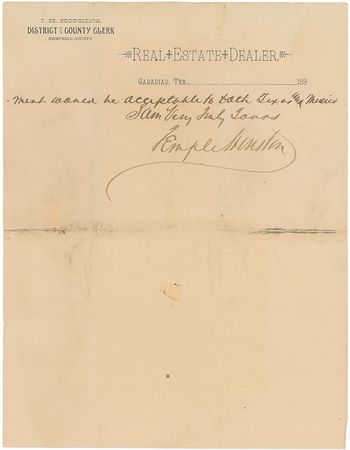 J. H. HOPKINS,
DISTRICT & COUNTY CLERK
HEMPHILL COUNTY.
REAL ESTATE DEALER.
CANADIAN, TEX. 189
- ment would be acceptable to both Texas & Mexico
I am Very Truly Yours
Temple Houston